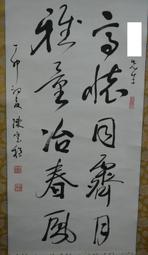 先生
高懷同霽月
雅量洽春風
丁卯初夏 陳